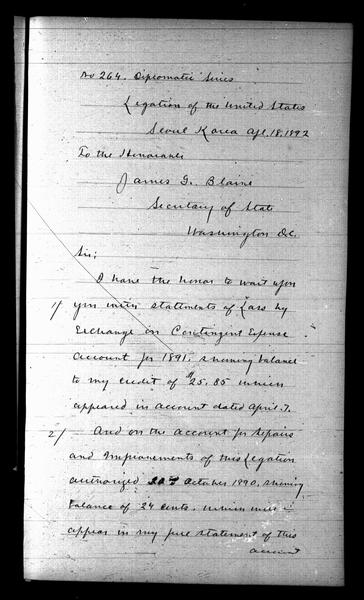 No 264. Diplomatic Series
Legation of the United States
Seoul Korea Apl. 18, 1892
To the Honorable
James G. Blaine
Secretary of State
Washington D.C.
Sir;
I have the honor to wait upon
1/ you with statements of Loss by
Exchange on Contingent Expense
account for 1891, showing balance
to my credit of $25.85 which
appeared in account dated April 7.
2/ And on the account for Repairs
and Improvements of this Legation
authorized October 1890, showing
balance of 24 cents. which will
appear in my full statement of this
account